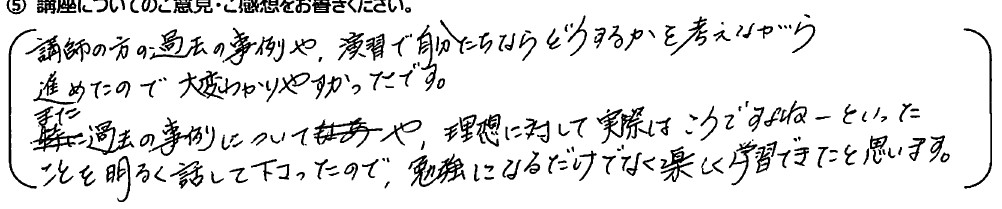 ⑤ 講座についてのご意見・ご感想をお書きください。
講師の方の過去の事例や、演習で自分たちならどうするかを考えながら
進めたので大変わかりやすかったです。
また
過去の事例についてや、理想に対して実際はこうですよねーといった
ことを明るく話して下さったので、勉強になるだけでなく楽しく学習できたと思います。